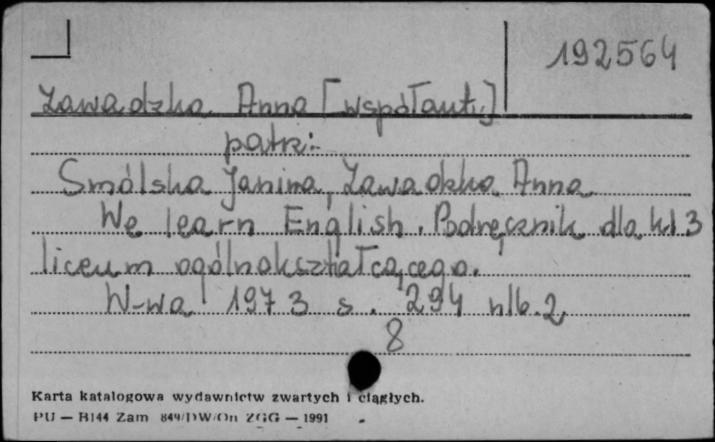 192564
Zawadzka Anna [współaut.]
patrz:
Smólska Janina, Zawadzka Anna
We learn English. Podręcznik dla kl. 3
liceum ogólnokształcącego.
W-wa 1973 s. 294 nlb. 2
8
Karta katalogowa wydawnictw zwartych i ciągłych.
PU — H144 Zam 849/DW/On ZGG — 1991